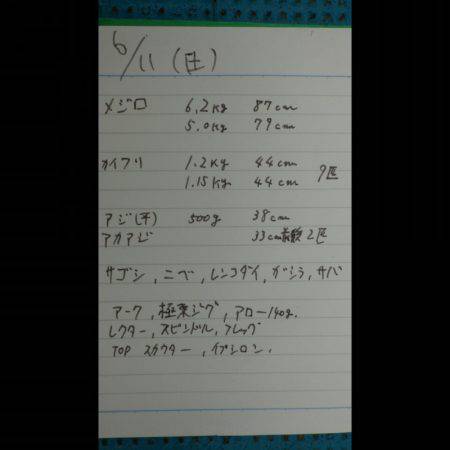 6/11(土)
メジロ 6.2kg 87cm
5.0kg 79cm
ガイフリ 1.2kg 44cm
1.15kg 44cm 9匹
アジ(平) 500g 38cm
アカアジ 33cm前後 2匹
サゴシ, ニベ, レンコダイ, ガシラ, サバ
アーク, 極楽ジグ, アロー140g.
レクター, スピンドル, フレッグ
TOP スカウター, イプシロン.